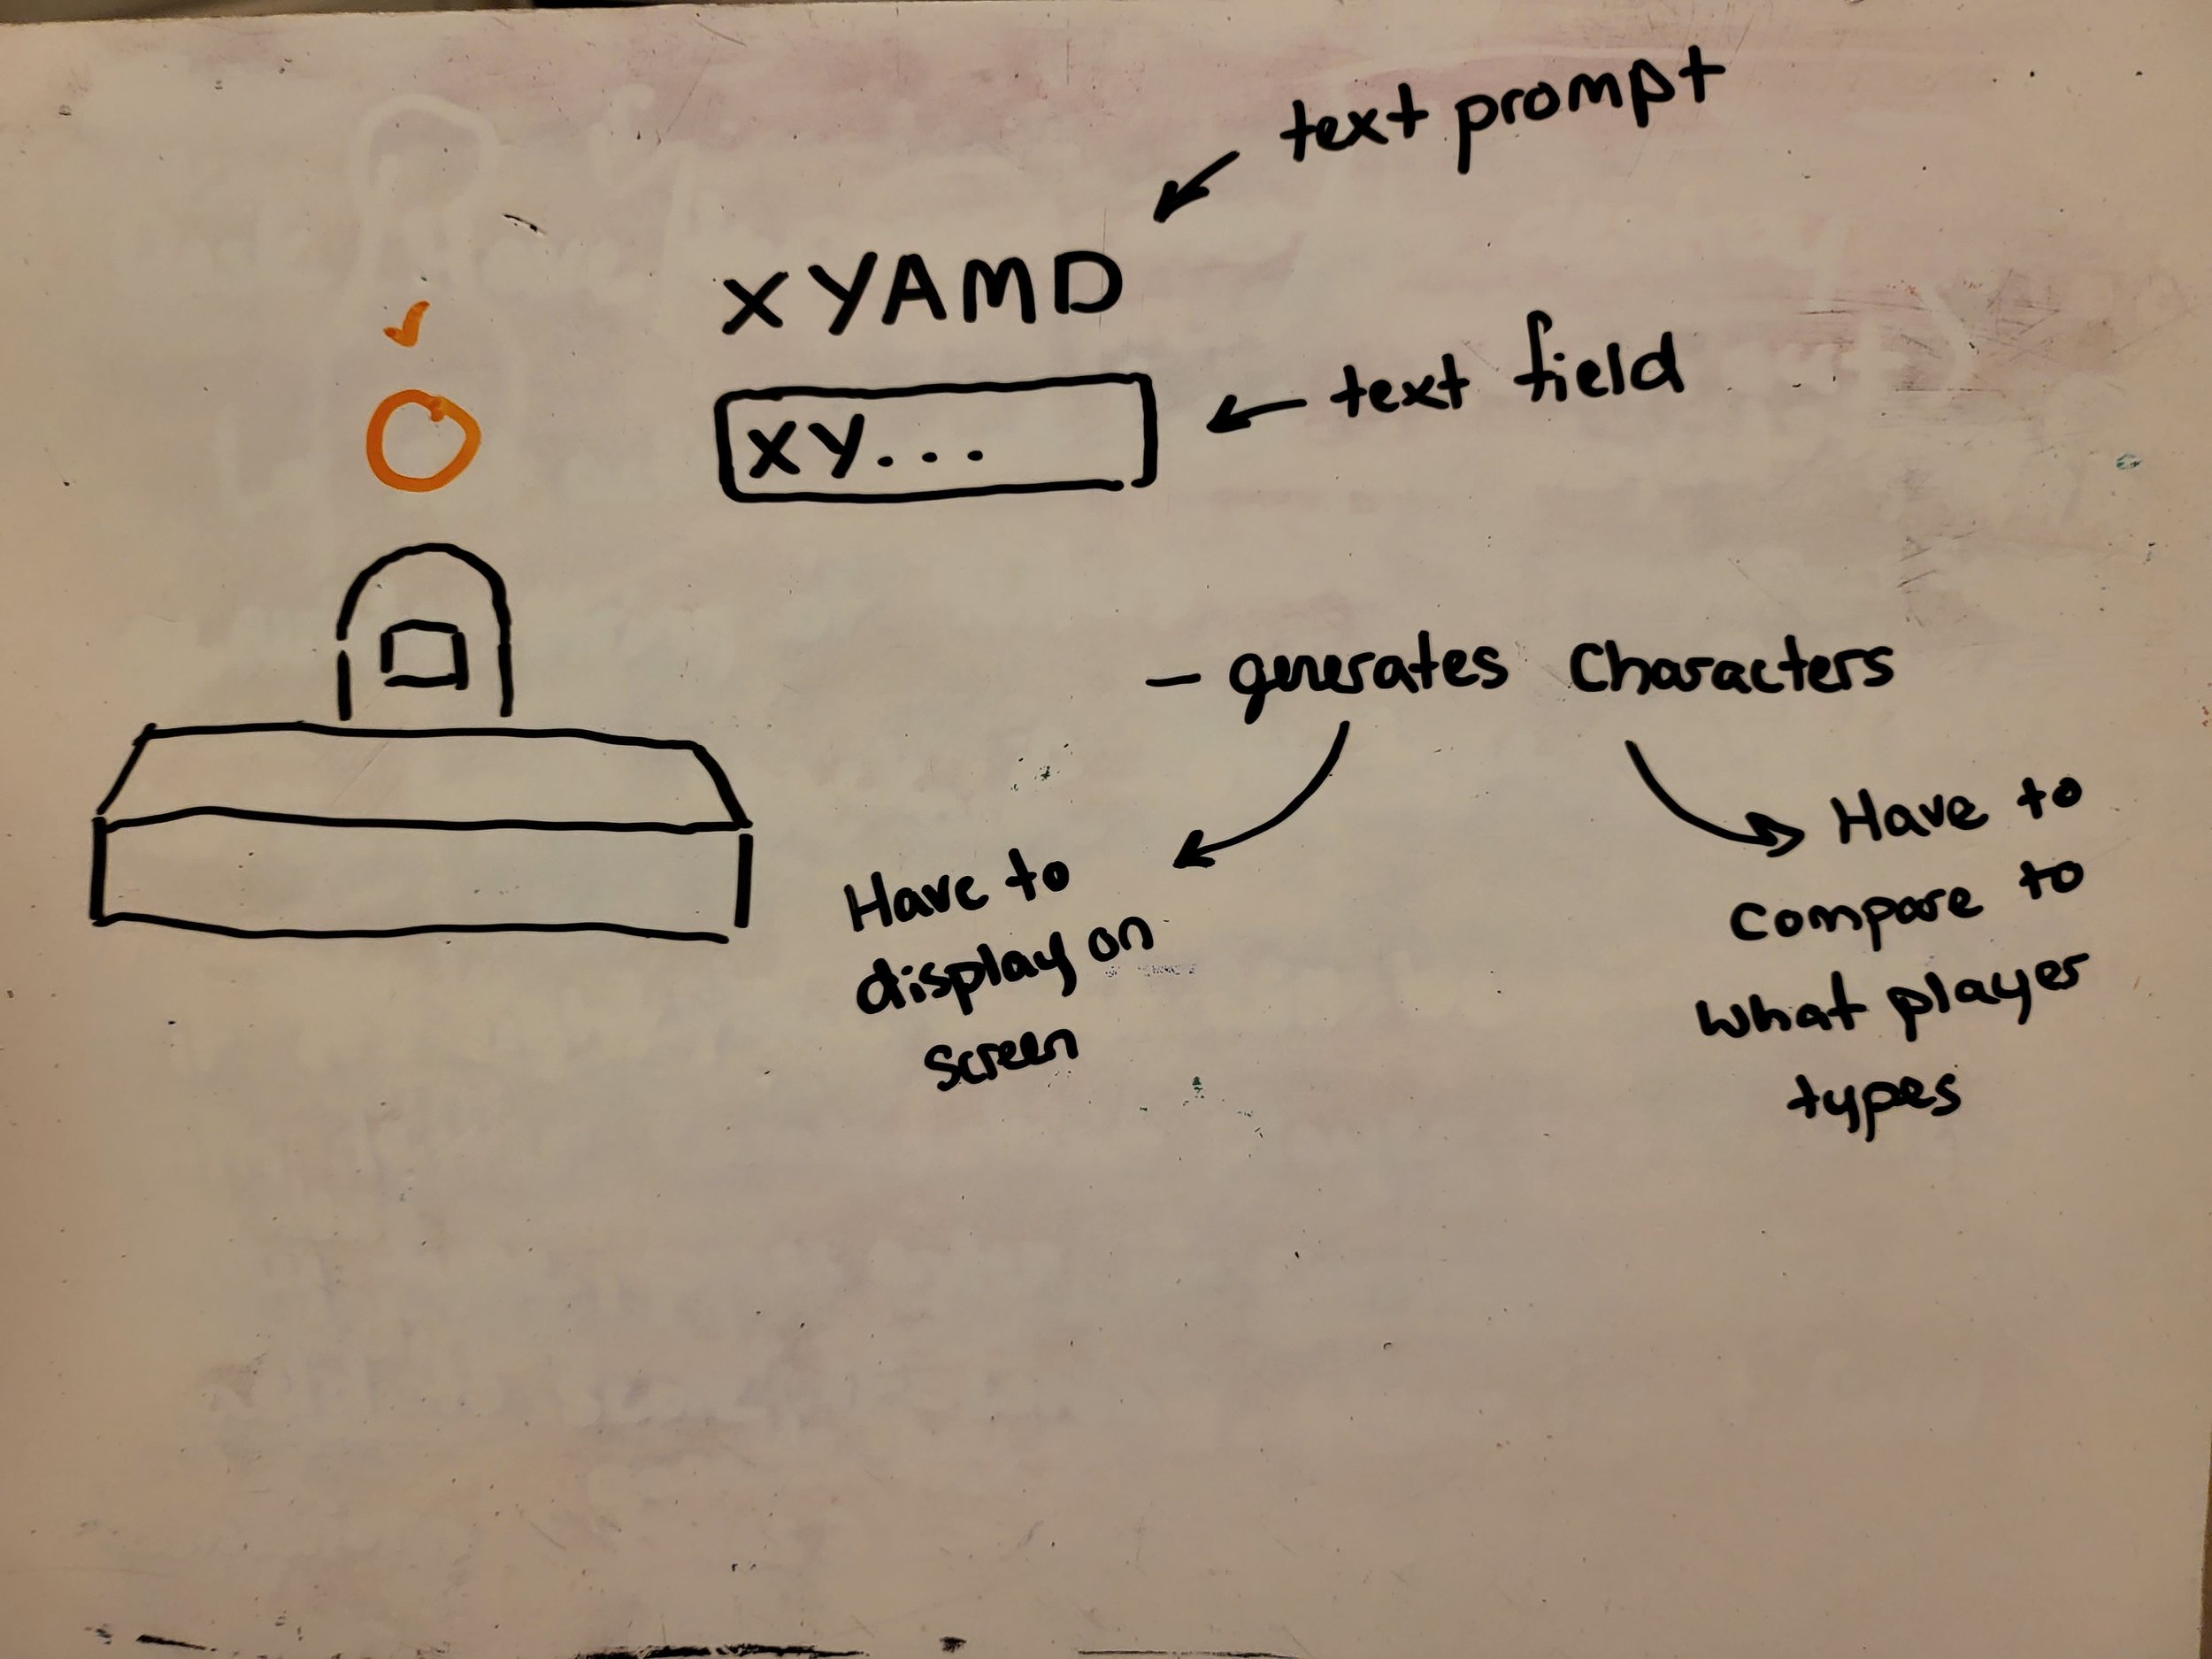 text prompt
XYAMD
text field
XY...
- generates Characters
Have to
display on
screen
Have to
Compare to
What player
types